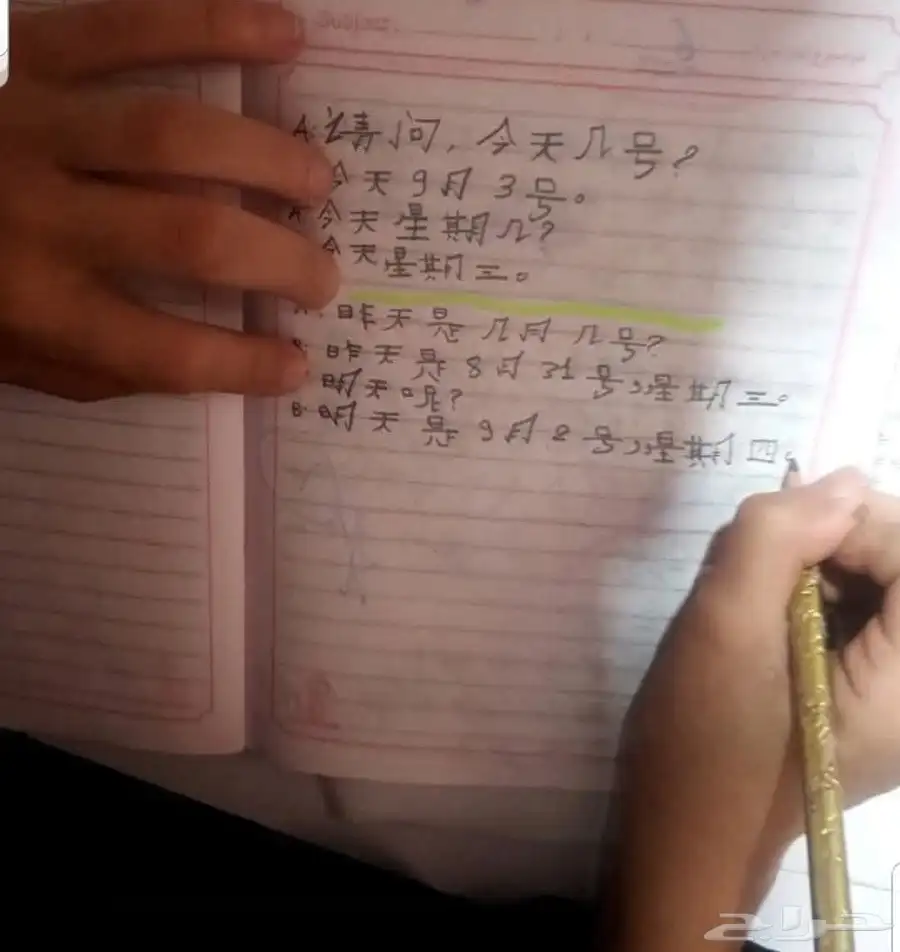 Subject:
A: 请问，今天几号？
今天9月3号。
A: 今天星期几？
今天星期三。
A: 昨天是几月几号？
B: 昨天是8月31号，星期三。
明天呢？
B: 明天是9月2号，星期四。
حراج